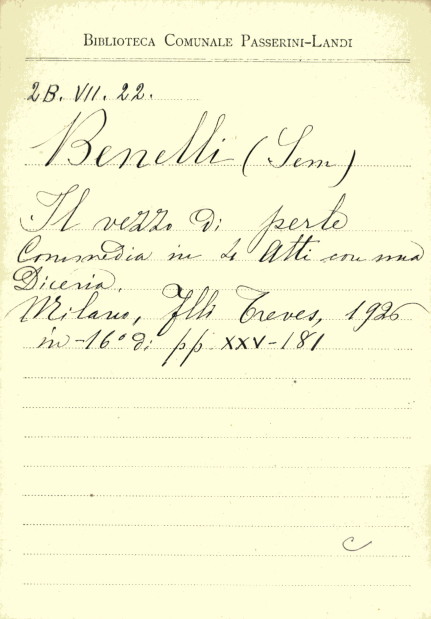 BIBLIOTECA COMUNALE PASSERINI-LANDI
2B. VII. 22.
Benelli (Sem)
Il vezzo di perle
Commedia in 4 Atti con una
Diceria.
Milano, Flli Treves, 1926
in-16º di pp. XXV-181
C